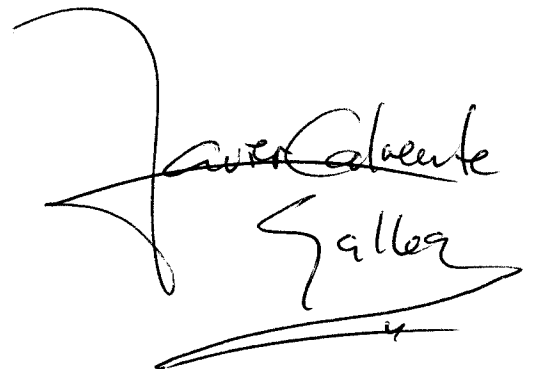 Javier Calvente
Gallea